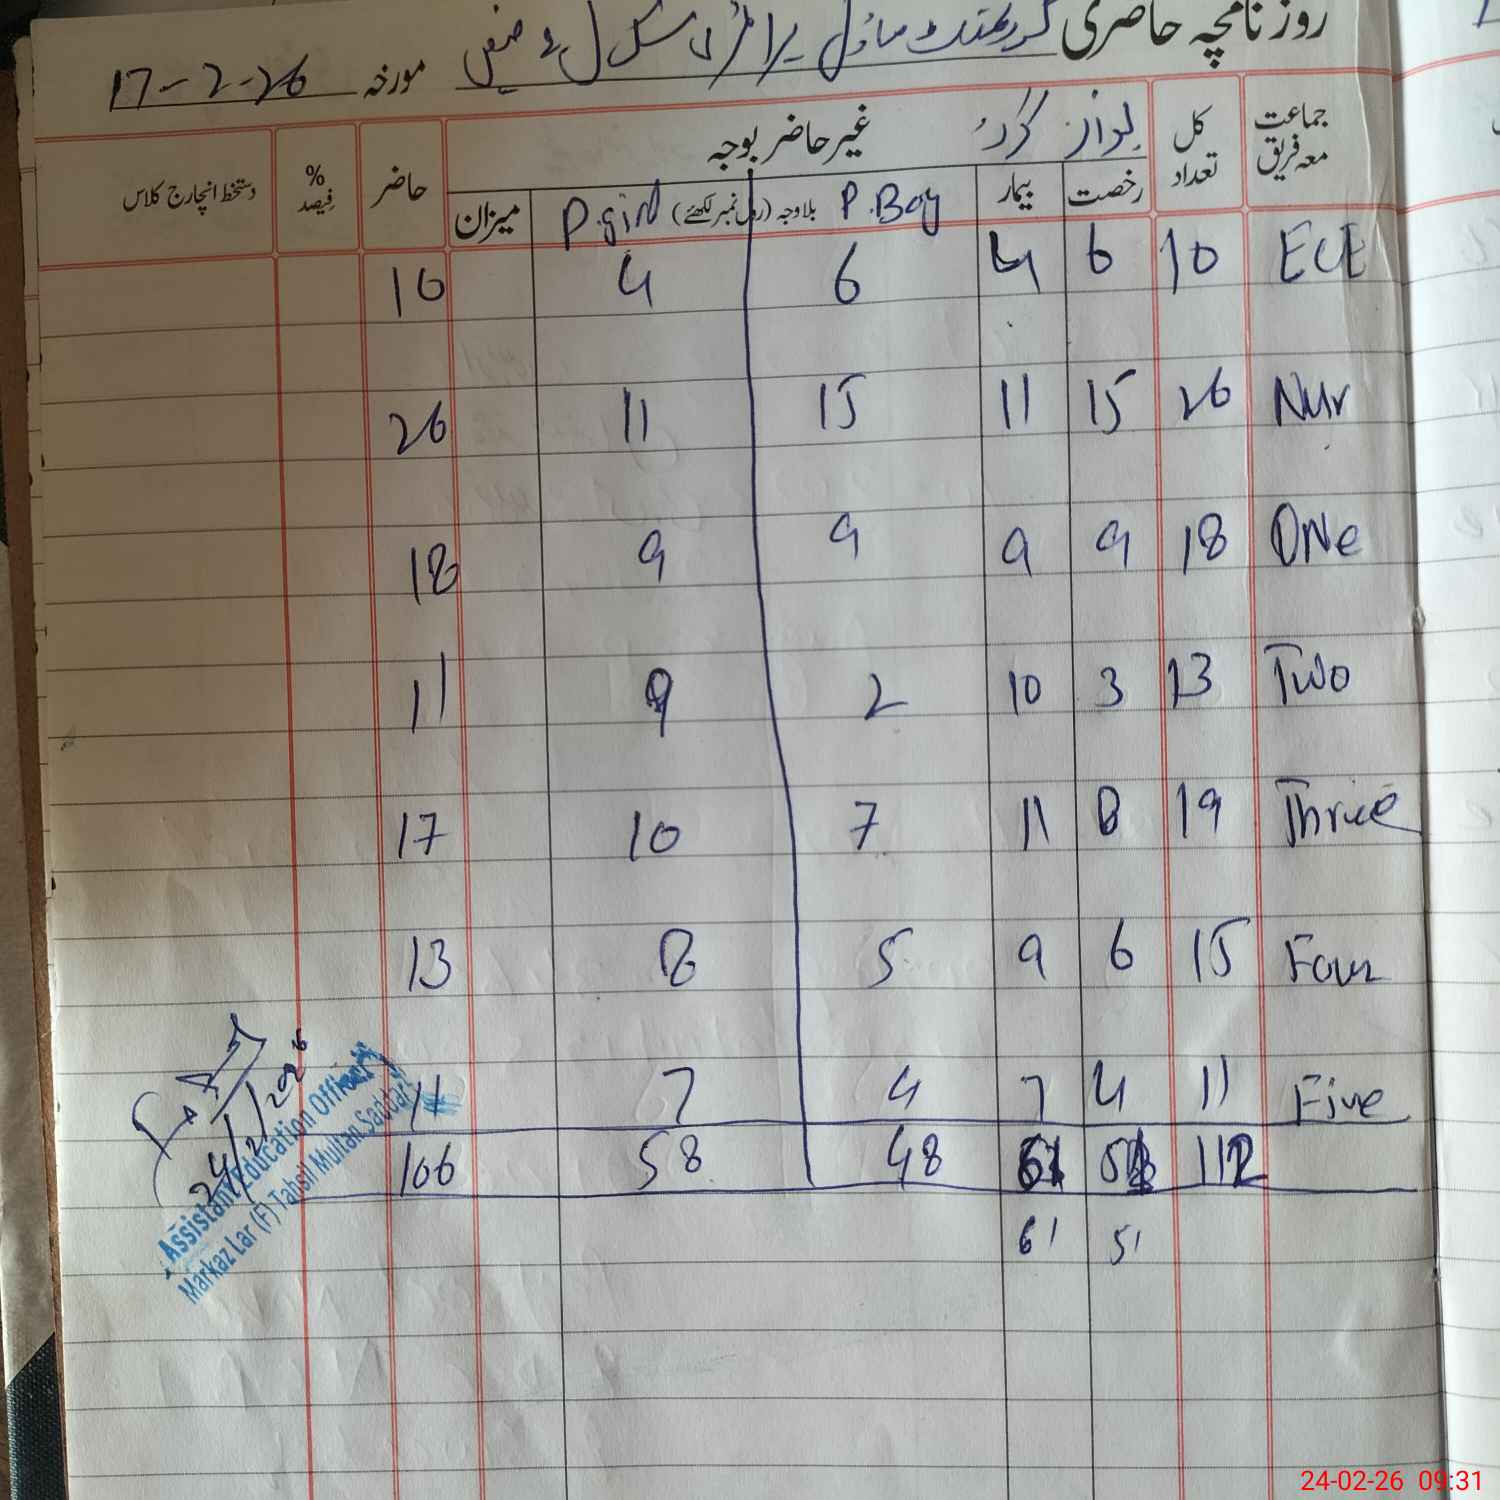 روزنامچہ حاضری گورنمنٹ ماڈل پرائمری سکول مورخہ 17-2-26
جماعت معہ فریق کل تعداد بوائز گرلز غیر حاضر بوجہ حاضر % فیصد دستخط انچارج کلاس
رخصت بیمار P.Boy بلاوجہ (رول نمبر لکھئے) P.girl میزان
ECE 10 6 4 6 4 10
Nur 26 15 11 15 11 26
ONe 18 9 9 9 9 18
Two 13 3 10 2 9 11
Three 19 8 11 7 10 17
Four 15 6 9 5 8 13
Five 11 4 7 4 7 11
112 48 58 106
51 61
24/2/2026
Assistant Education Officer
Markaz Lar (F) Tahsil Multan Saddar
24-02-26 09:31